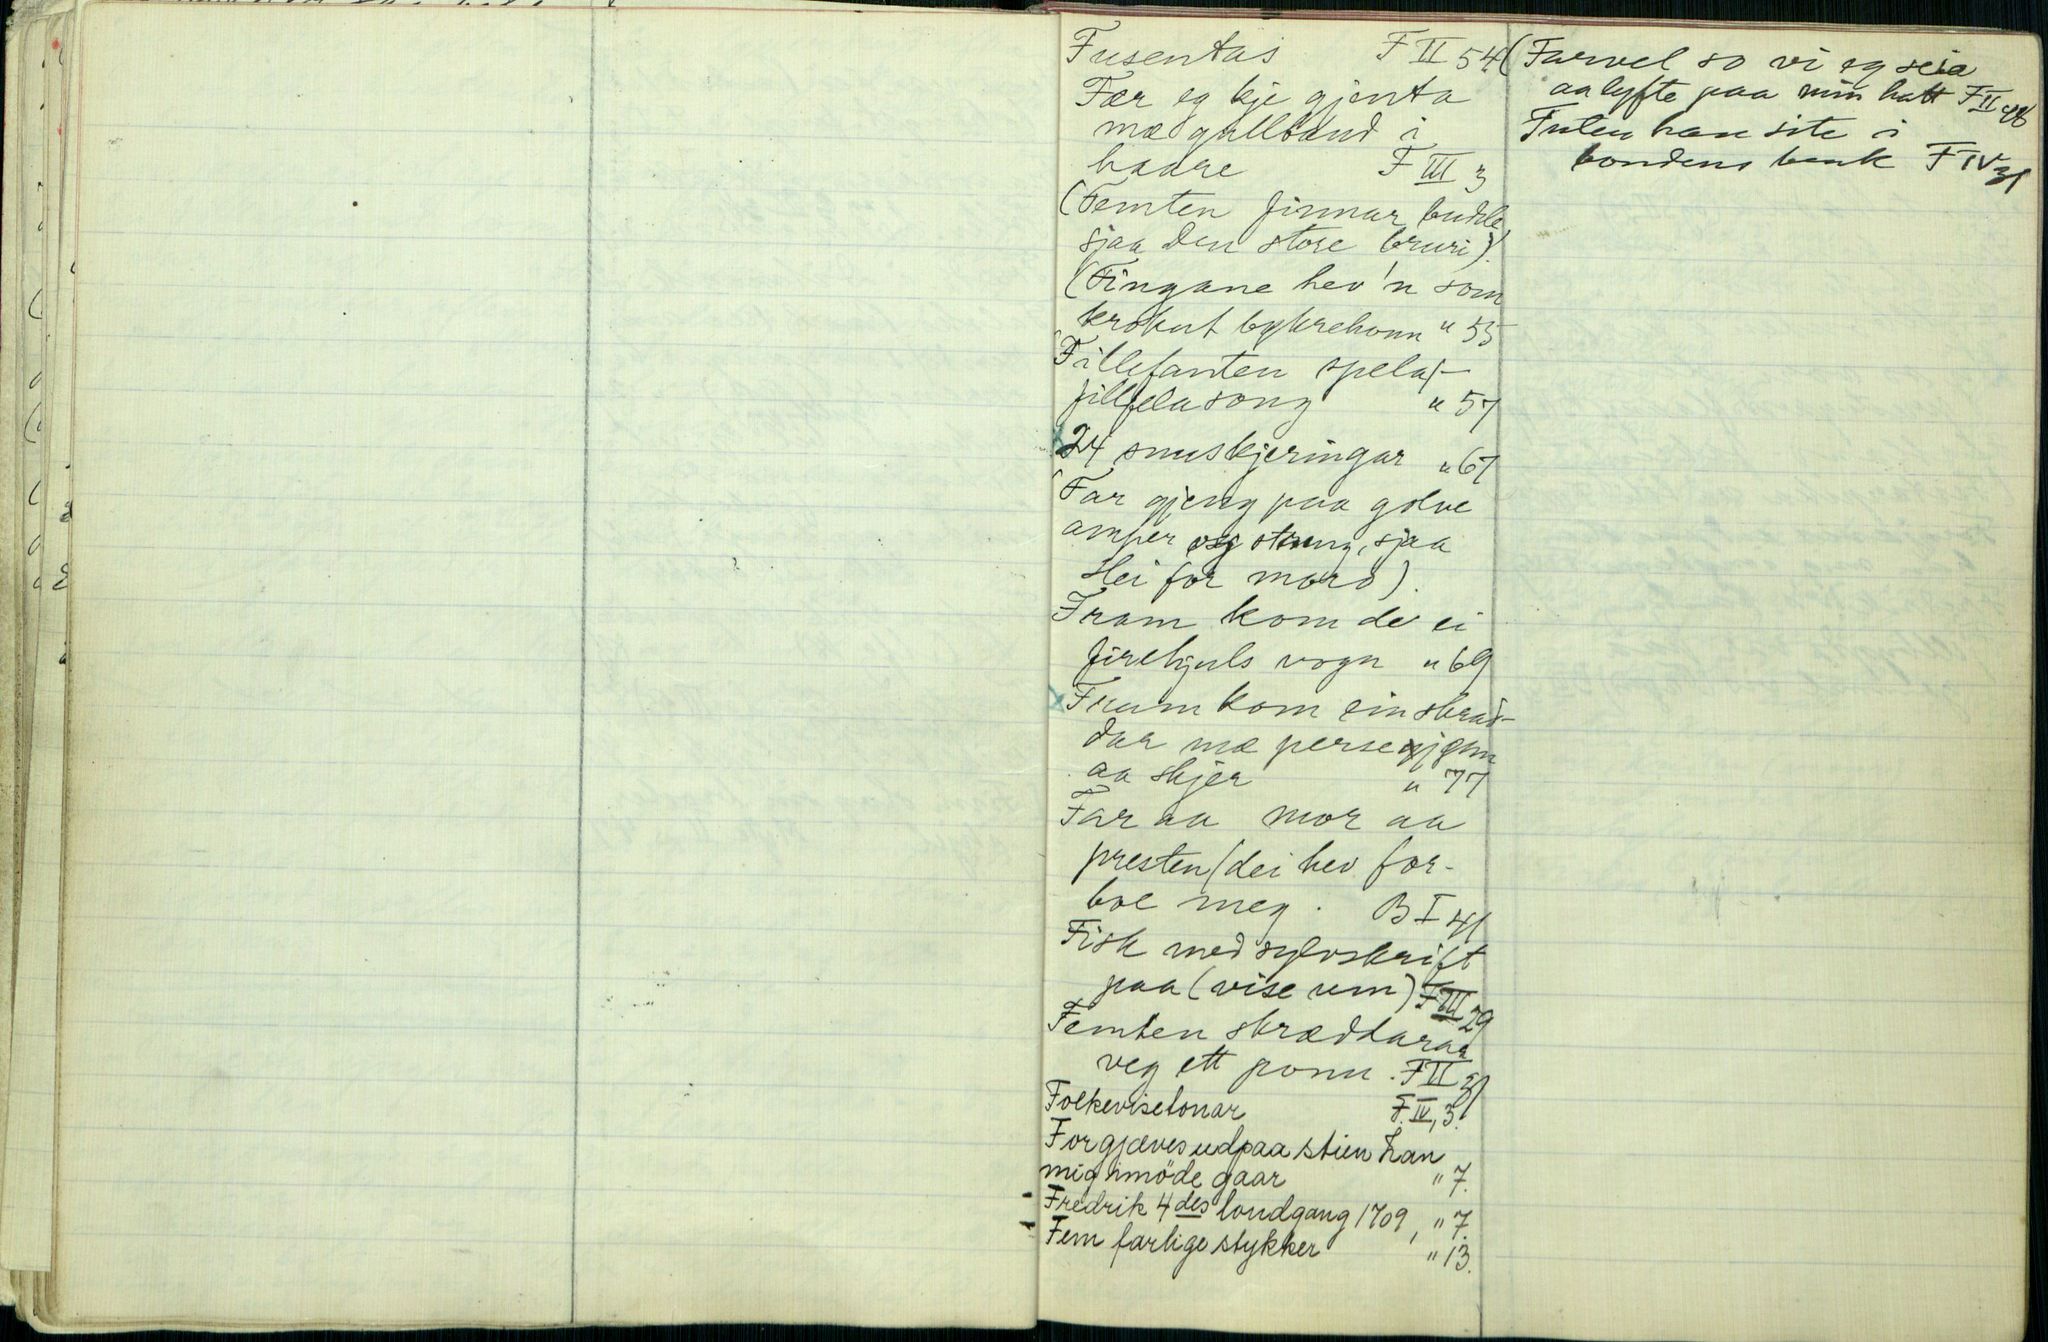 Fusentas F II 54
Fær eg kje gjenta
mæ gullband i
haare F III 3
(Femten finnar budde
sjaa den store bruri).
(Fingane hev'n som
krokut bukrehonn " 55
Fillefanten spela
fillfelasong " 57
24 snuskjeringar " 67
Far gjeng paa golve
amper og streng, sjaa
Hei for moro).
Fram kom de ei
firehjuls vogn " 69
Fram kom ein skrad-
dar mæ persejønn
aa skjer " 77
Far aa mor aa
presten (dei hev for-
boe meg. B I 41
Fisk med sylvskrift
paa (vise um) F III 29
Femten skræddarar
veg ett ponn. F II 31
Folkevisetonar F. IV, 3.
Forgjæves udpaa stien han
mig imöde gaar " 7.
Fredrik 4des londgang 1709, " 7.
Fem farlige stykker " 13.
(Farvel so vi eg seia
aa lyfte paa min hatt F II 48
Futen han site i
bondens benk F IV 31